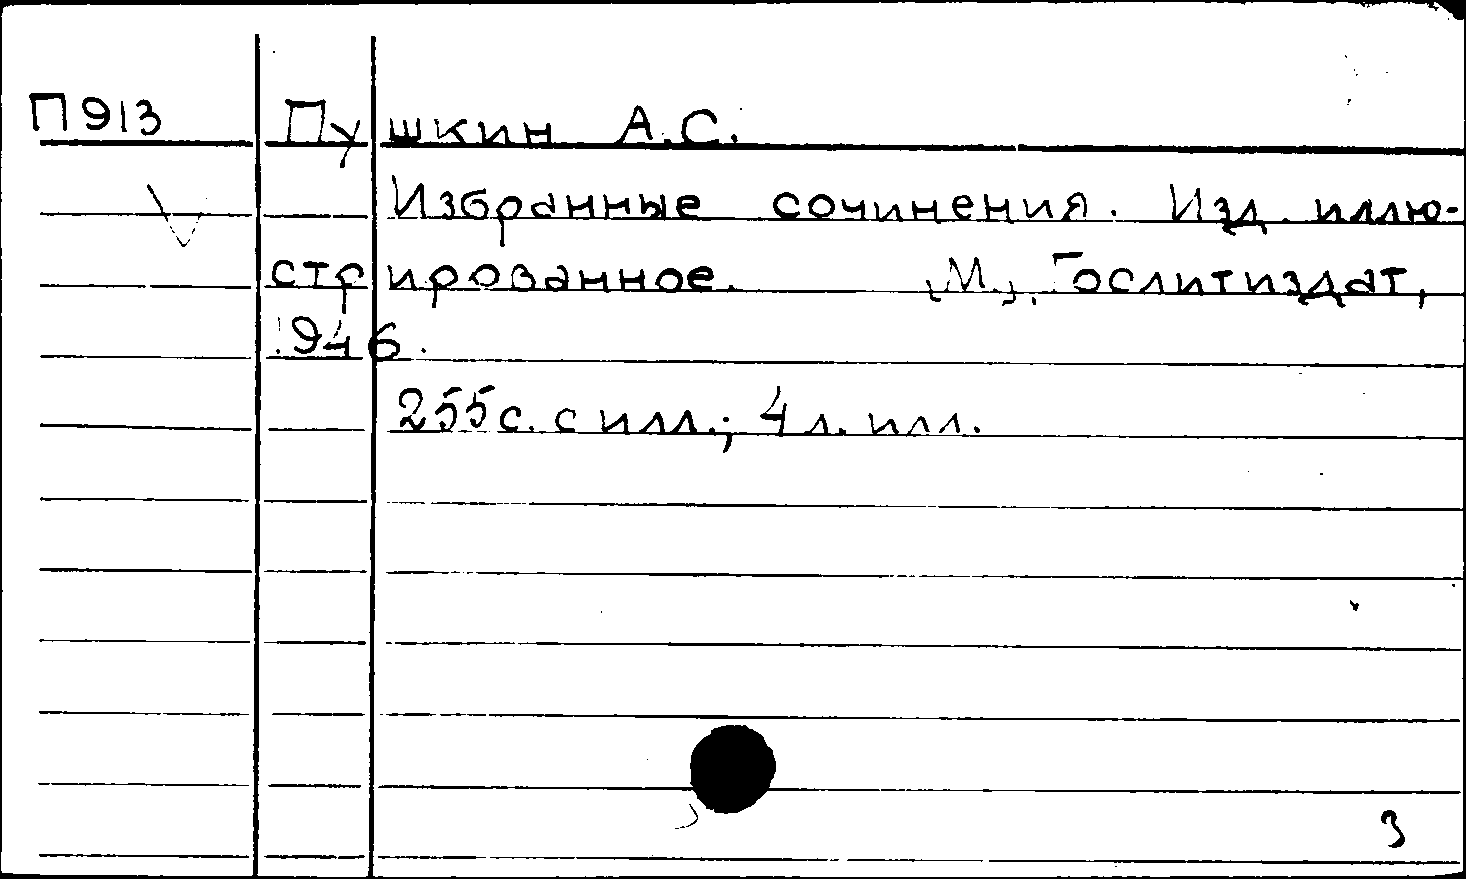 П913 Пушкин А.С.
Избранные сочинения. Изд. иллю-
стрированное. [М.], Гослитиздат,
1946.
255с. с илл.; 4 л. илл.
3